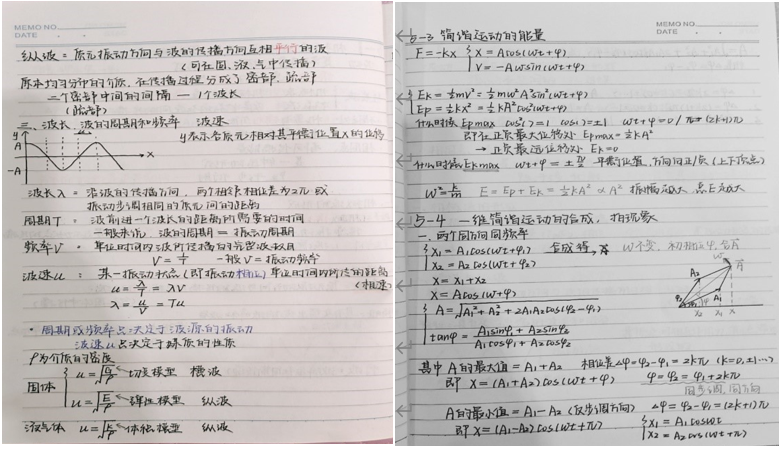 MEMO NO.
DATE
纵波：质元振动方向与波的传播方向互相平行的波
（可在固、液、气中传播）
原本均匀分布的介质，在传播过程分成了密部、疏部
二个密部中间的间隔 — 1个波长
（疏部）
三、波长、波的周期和频率 波速
y表示各质元相对其平衡位置x的位移
y
A
-A
x
波长λ：沿波的传播方向，两个相邻相位差为2π或
振动步调相同的质元间的距离
周期T：波前进一个波长的距离所需要的时间
一般来说，波的周期 = 振动周期
频率ν：单位时间内波所传播的完整波数目
ν = 1/T 一般ν = 振动频率
波速u：某一振动状态（即振动相位）单位时间内所传的距离
（相速）
u = λ/T = λν
λ = u/ν = Tu
• 周期或频率只决定于波源的振动
波速u只决定于媒质的性质
ρ为介质的密度
固体 { u = √G/ρ ← 切变模量 横波
u = √E/ρ ← 弹性模量 纵波
液气体 u = √k/ρ ← 体积模量 纵波
MEMO NO.
DATE
5-3 简谐运动的能量
F = -kx { x = Acos(ωt+φ)
v = -Aωsin(ωt+φ)
{ Ek = ½mv² = ½mω²A²sin²(ωt+φ)
Ep = ½kx² = ½kA²cos²(ωt+φ)
什么时候Epmax cos²( )=1 cos( )=±1 ωt+φ = 0/π± (2k+1)π
即在正质最大位移处 Epmax = ½kA²
→ 正质最远位移处 Ek=0
什么时候Ekmax ωt+φ = ±π/2 平衡位置，方向向正/负（上下顶点）
ω²= k/m E = Ep + Ek = ½kA² ∝ A² 振幅A越大，总E越大
5-4 一维简谐运动的合成，拍现象
一、两个同方向同频率
{ x₁ = A₁cos(ωt+φ₁) 合成得 ω不变，初相位φ，合A
x₂ = A₂cos(ωt+φ₂)
x = x₁+x₂
x = Acos(ωt+φ)
{ A = √A₁²+A₂²+2A₁A₂cos(φ₂-φ₁)
tanφ = A₁sinφ₁+A₂sinφ₂ / A₁cosφ₁+A₂cosφ₂
ω
A
A₂
A₁
φ₂ φ₁ φ
x₂ x₁ x
其中A的最大值 = A₁+A₂ 相位差Δφ=φ₂-φ₁=2kπ (k=0,±1…)
即 x = (A₁+A₂)cos(ωt+φ) φ=φ₂=φ₁+2kπ
同步调，同方向
A的最小值 = A₁-A₂（反步调方向） Δφ = φ₂-φ₁=(2k+1)π
即 x = (A₁-A₂)cos(ωt+π) { x₁ = A₁cosωt
x₂ = A₂cos(ωt+π)